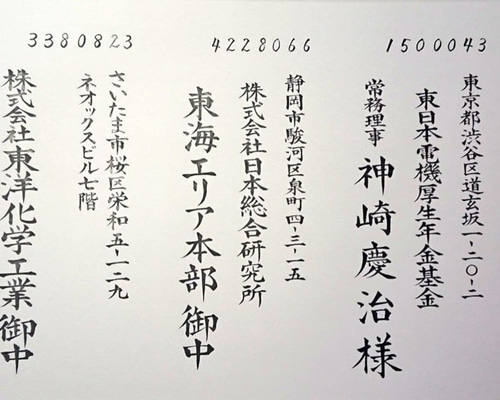 1500043
東京都渋谷区道玄坂一-二〇-二
東日本電機厚生年金基金
常務理事
神崎慶治様
4228066
静岡市駿河区泉町四-三-一五
株式会社日本総合研究所
東海エリア本部御中
3380823
さいたま市桜区栄和五-一-二九
ネオックスビル七階
株式会社東洋化学工業御中